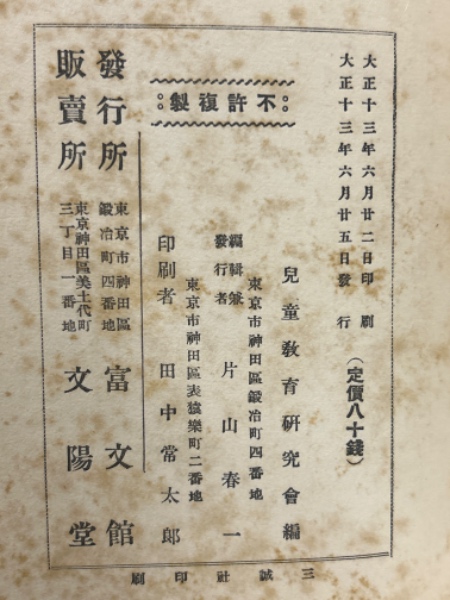 大正十三年六月廿二日印刷
大正十三年六月廿五日發行
（定價八十錢）
不許複製
兒童敎育硏究會編
東京市神田區鍛冶町四番地
編輯兼
發行者
片山春一
東京市神田區表猿樂町二番地
印刷者 田中常太郎
發行所
東京市神田區
鍛冶町四番地
富文館
販賣所
東京神田區美土代町
三丁目一番地
文陽堂
三誠社印刷